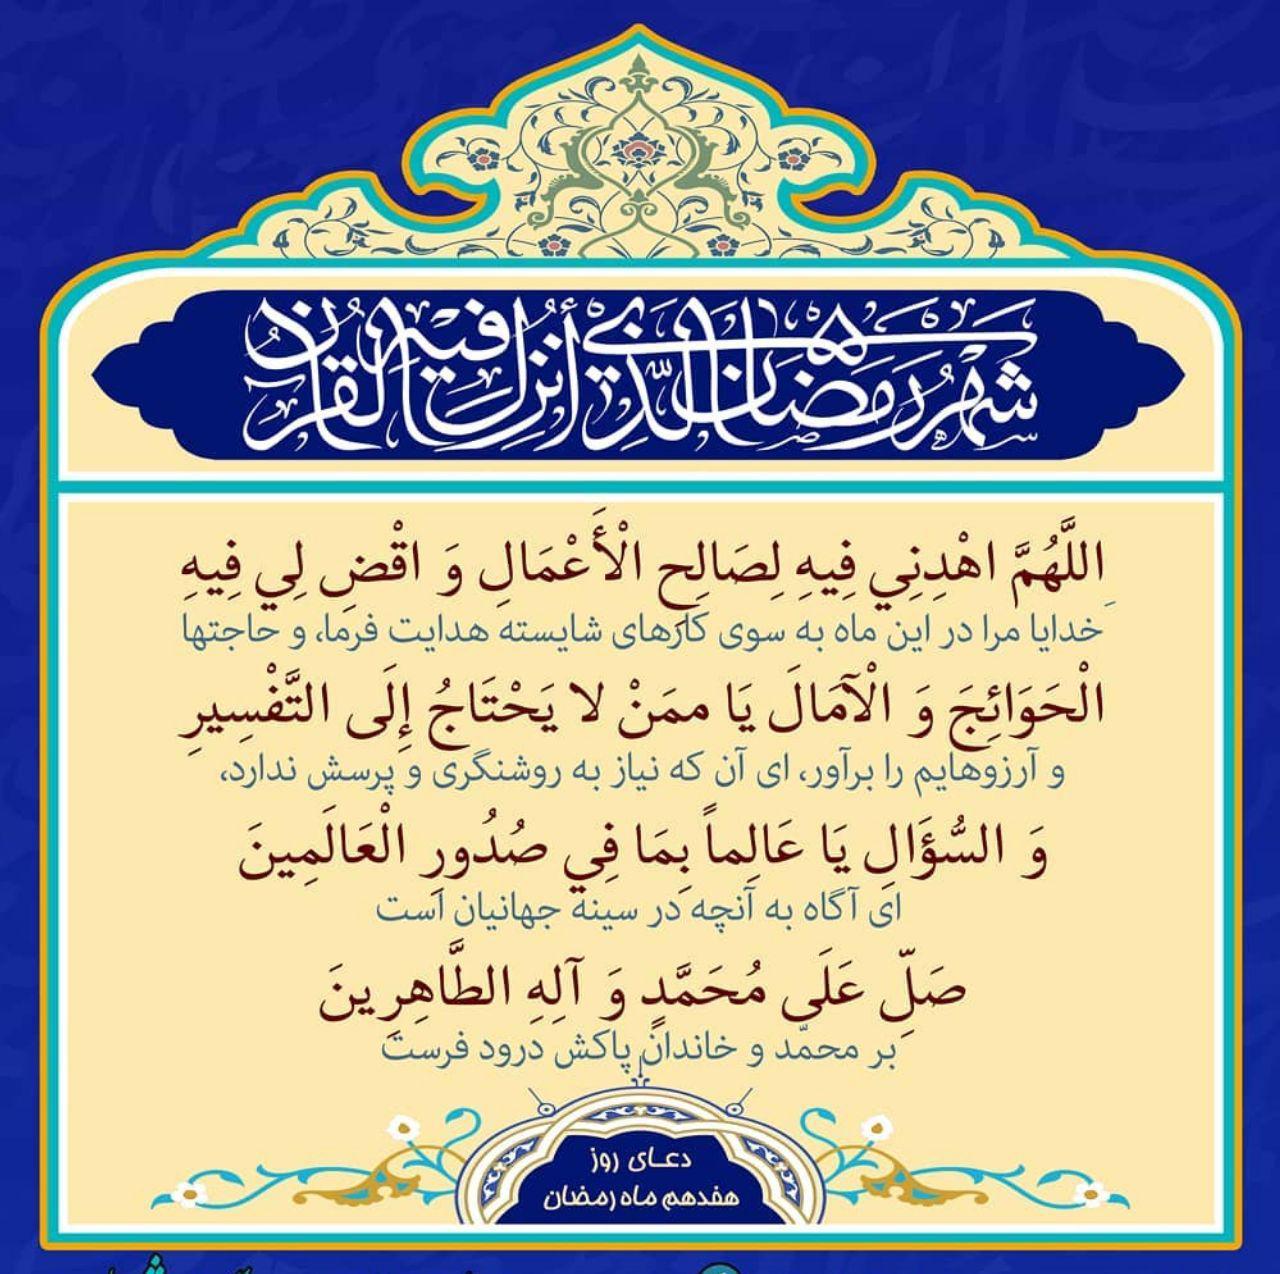 شَهرُ رَمَضانَ الَّذِي أُنزِلَ فيهِ القُرآن
اللَّهُمَّ اهْدِنِي فِيهِ لِصَالِحِ الْأَعْمَالِ وَ اقْضِ لِي فِيهِ
خدایا مرا در این ماه به سوی کارهای شایسته هدایت فرما، و حاجتها
الْحَوَائِجَ وَ الْآمَالَ يَا ممَنْ لا يَحْتَاجُ إِلَى التَّفْسِيرِ
و آرزوهایم را برآور، ای آن که نیاز به روشنگری و پرسش ندارد،
وَ السُّؤَالِ يَا عَالِماً بِمَا فِي صُدُورِ الْعَالَمِينَ
ای آگاه به آنچه در سینه جهانیان است
صَلِّ عَلَى مُحَمَّدٍ وَ آلِهِ الطَّاهِرِينَ
بر محمّد و خاندان پاکش درود فرست
دعای روز
هفدهم ماه رمضان